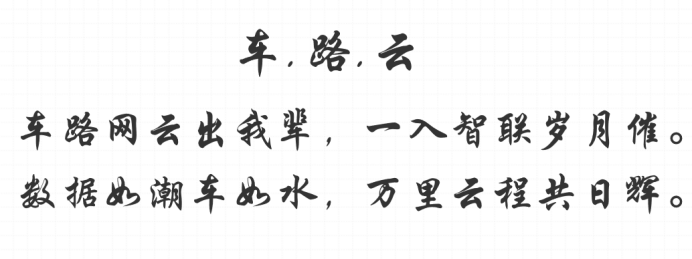 车,路,云
车路网云出我辈，一入智联岁月催。
数据如潮车如水，万里云程共日辉。